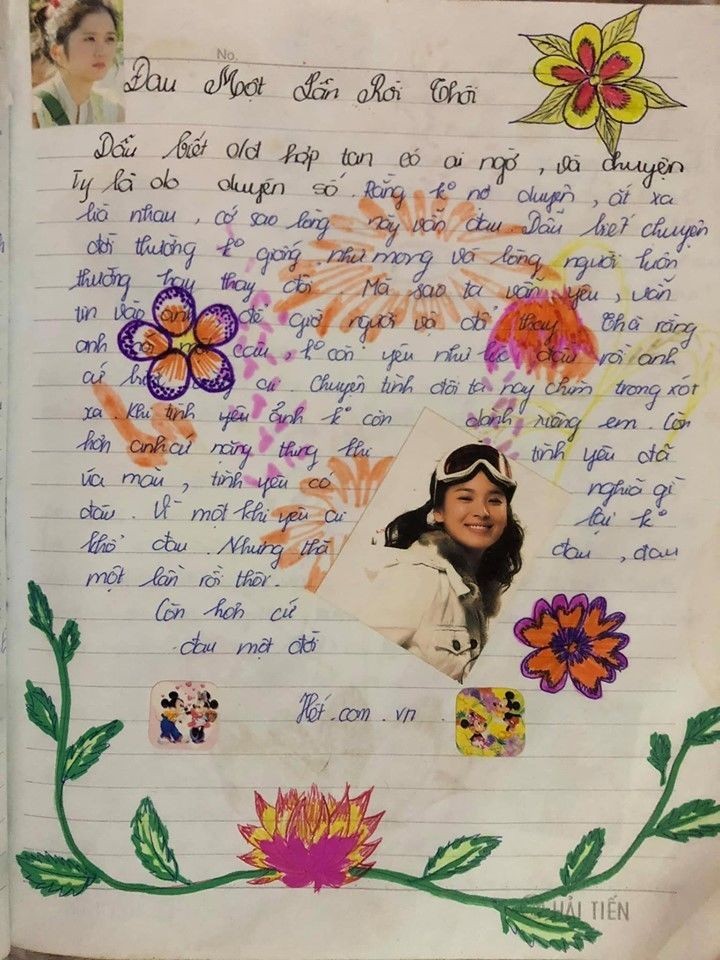 No.
Đau Một Lần Rồi Thôi
Dẫu biết old hợp tan có ai ngờ, và chuyện
Ty là do duyên số. Rằng k° nợ duyên, ắt xa
lìa nhau, cớ sao lòng này vẫn đau. Dẫu biết chuyện
đời thường k° giống như mong và lòng người luôn
thường hay thay đổi. Mà sao ta vẫn yêu, vẫn
tin vào anh để giờ người vội đổi thay. Thà rằng
anh nói một câu, k° còn yêu như lúc đầu rồi anh
cứ cư. Chuyện tình đôi ta nay chìm trong xót
xa. Khi tình yêu ảnh k° còn dành riêng em. Còn
hơn anh cứ nặng thing khi tình yêu đã
úa màu, tình yêu có nghĩa gì
đâu. Vì một khi yêu ai lại k°
khổ đau. Nhưng thà đau, đau
một lần rồi thôi.
Còn hơn cứ
đau một đời
Hết.com.vn.
HẢI TIẾN